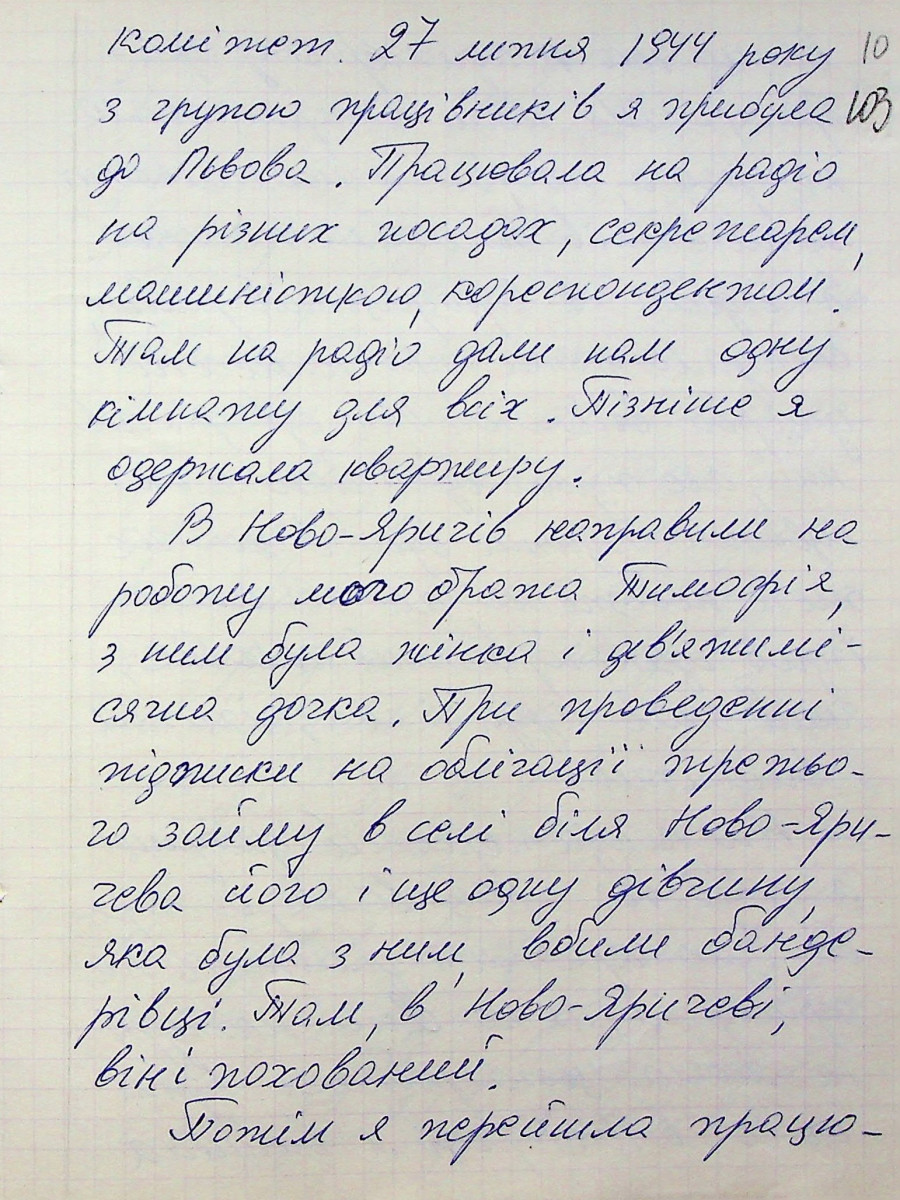 комітет. 27 липня 1944 року 10
з групою працівників я прибула 103
до Львова. Працювала на радіо
на різних посадах, секретарем,
машиністкою, кореспондентом.
Там на радіо дали нам одну
кімнату для всіх. Пізніше я
одержала квартиру.
В Ново-Яричів направили на
роботу мого брата Тимофія,
з ним була жінка і дев'ятимі-
сячна дочка. При проведенні
підписки на облігації третьо-
го займу в селі біля Ново-Яри-
чева його і ще одну дівчину,
яка була з ним, вбили банде-
рівці. Там, в Ново-Яричеві,
він і похований.
Потім я перейшла працю-